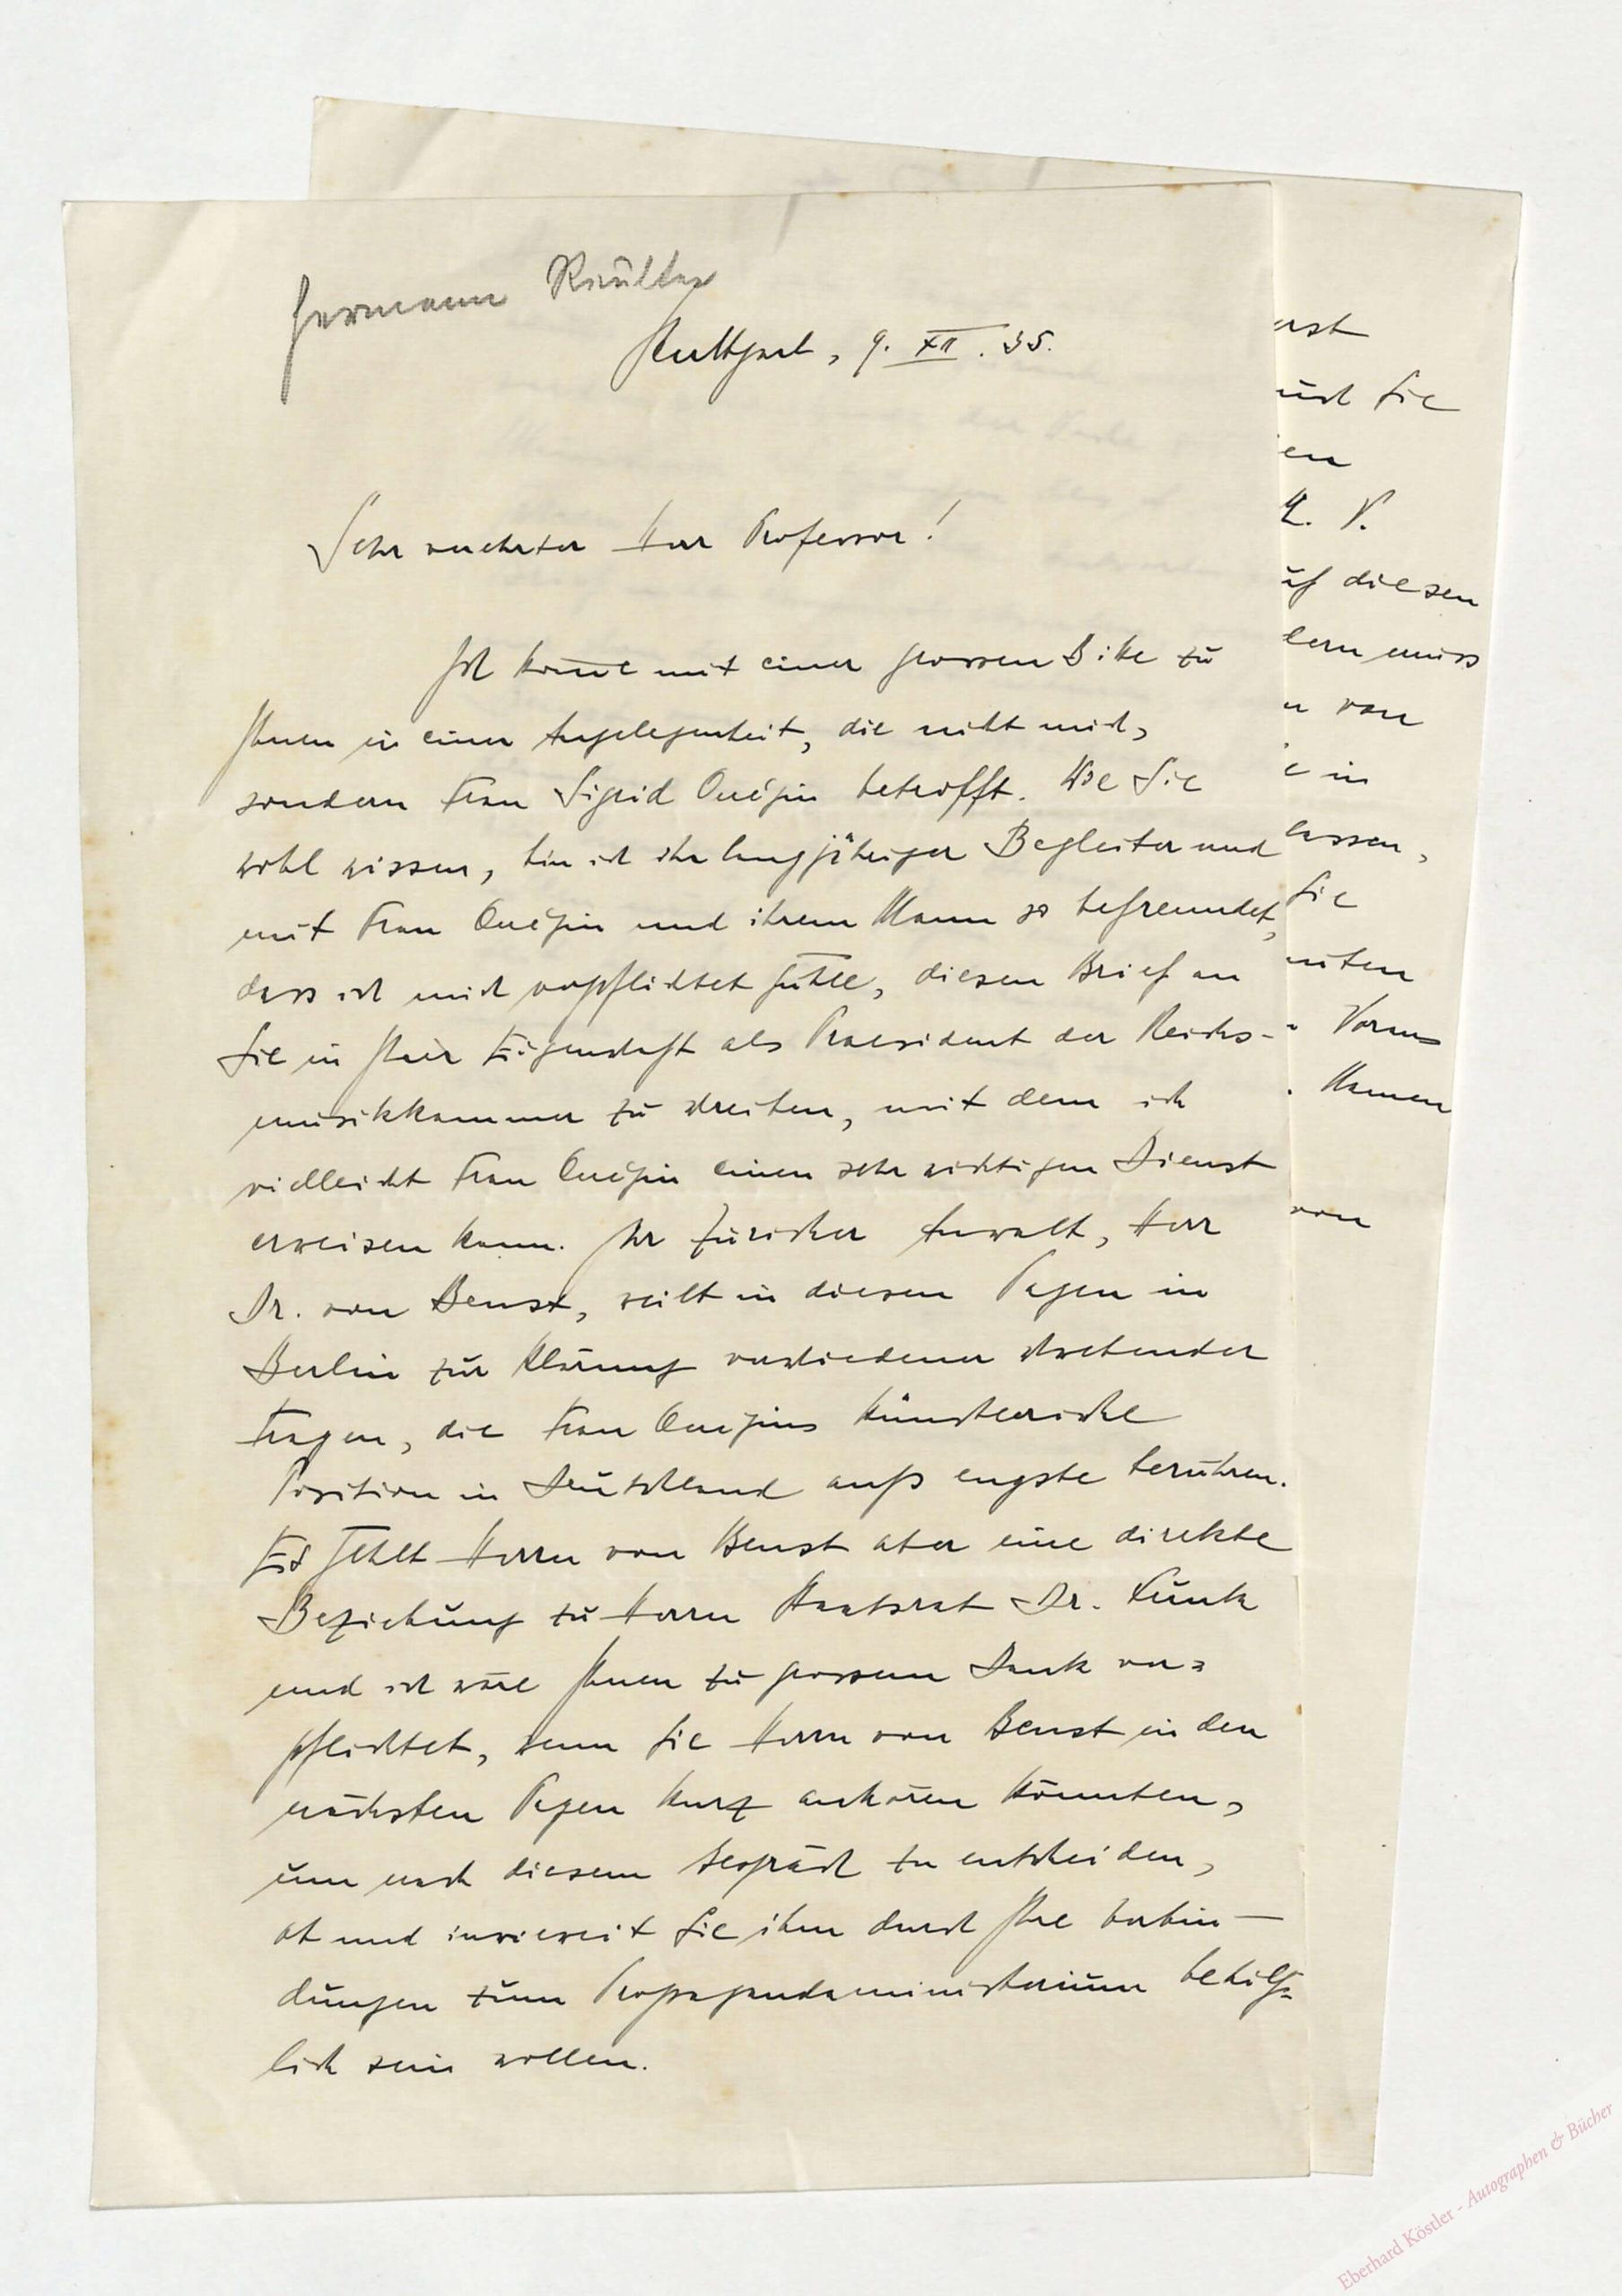 Hermann Reutter
Stuttgart, 9. XII. 35.
Sehr verehrter Herr Professor!
Ich komme mit einer grossen Bitte zu
Ihnen in einer Angelegenheit, die nicht mich,
sondern Frau Sigrid Onégin betrifft. Wie Sie
wohl wissen, bin ich ihr langjähriger Begleiter und
mit Frau Onégin und ihrem Mann so befreundet,
dass ich mich verpflichtet fühle, diesen Brief an
Sie in Ihrer Eigenschaft als Praesident der Reichs-
musikkammer zu schreiben, mit dem ich
vielleicht Frau Onégin einen sehr wichtigen Dienst
erweisen kann. Ihr Züricher Anwalt, Herr
Dr. von Beust, weilt in diesen Tagen in
Berlin zur Klärung verschiedener schwebender
Fragen, die Frau Onégins künstlerische
Position in Deutschland aufs engste berühren.
Es fehlt Herrn von Beust aber eine direkte
Beziehung zu Herrn Staatsrat Dr. Funk
und ich wäre Ihnen zu grossem Dank ver=
pflichtet, wenn Sie Herrn von Beust in den
nächsten Tagen kurz anhören könnten,
um nach diesem Gespräch zu entscheiden,
ob und inwieweit Sie ihm durch Ihre Verbin-
dungen zum Propagandaministerium behilf=
lich sein wollen.
Sie
en
V.
diesen
muss
von
in
assen,
Sie
Namen
von
Eberhard Köstler - Autographen & Bücher